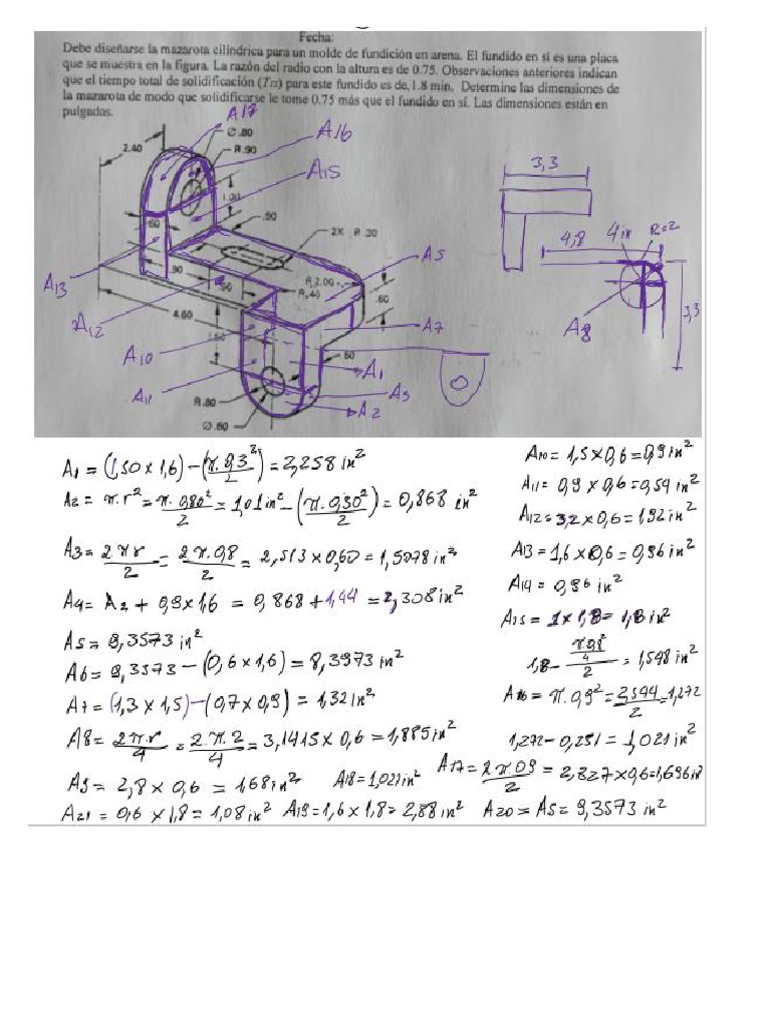 Fecha:
Debe diseñarse la mazarota cilíndrica para un molde de fundición en arena. El fundido en si es una placa
que se muestra en la figura. La razón del radio con la altura es de 0.75. Observaciones anteriores indican
que el tiempo total de solidificación (Tm) para este fundido es de, 1.8 min. Determine las dimensiones de
la mazarota de modo que solidificarse le tome 0.75 más que el fundido en sí. Las dimensiones están en
pulgadas.
A17
Ø.80
A16
2.40
R.90
A15
3,3
1.00
.60
.90
2X R.30
A5
4,8
4in
R=2
A13
.90
R.2.00
R.40
.60
A12
4.60
A7
A8
3,3
A10
.60
A1
A11
R.80
A3
A2
Ø.60
A1 = (1,50 x 1,6) - (π.0,3²/2) = 2,258 in²
A2 = π.r² = π.0,80²/2 = 1,01 in² - (π.0,30²/2) = 0,868 in²
A3 = 2πr/2 = 2π.0,8/2 = 2,513 x 0,60 = 1,5078 in²
A4 = A2 + 0,9 x 1,6 = 0,868 + 1,44 = 2,308 in²
A5 = 9,3573 in²
A6 = 9,3573 - (0,6 x 1,6) = 8,3973 in²
A7 = (1,3 x 1,5) - (0,7 x 0,9) = 1,32 in²
A8 = 2π.r/4 = 2.π.2/4 = 3,1415 x 0,6 = 1,885 in²
A9 = 2,8 x 0,6 = 1,68 in²
A18 = 1,021 in²
A21 = 0,6 x 1,8 = 1,08 in²
A19 = 1,6 x 1,8 = 2,88 in²
A20 = A5 = 9,3573 in²
A10 = 1,5 x 0,6 = 0,9 in²
A11 = 0,9 x 0,6 = 0,54 in²
A12 = 3,2 x 0,6 = 1,92 in²
A13 = 1,6 x 0,6 = 0,96 in²
A14 = 0,96 in²
A15 = 1 x 1,8 = 1,8 in²
= 1,598 in²
A16 = π.0,9² = 2,544/2 = 1,272
1,272 - 0,251 = 1,021 in²
A17 = 2π0,9/2 = 2,827 x 0,6 = 1,696 in²